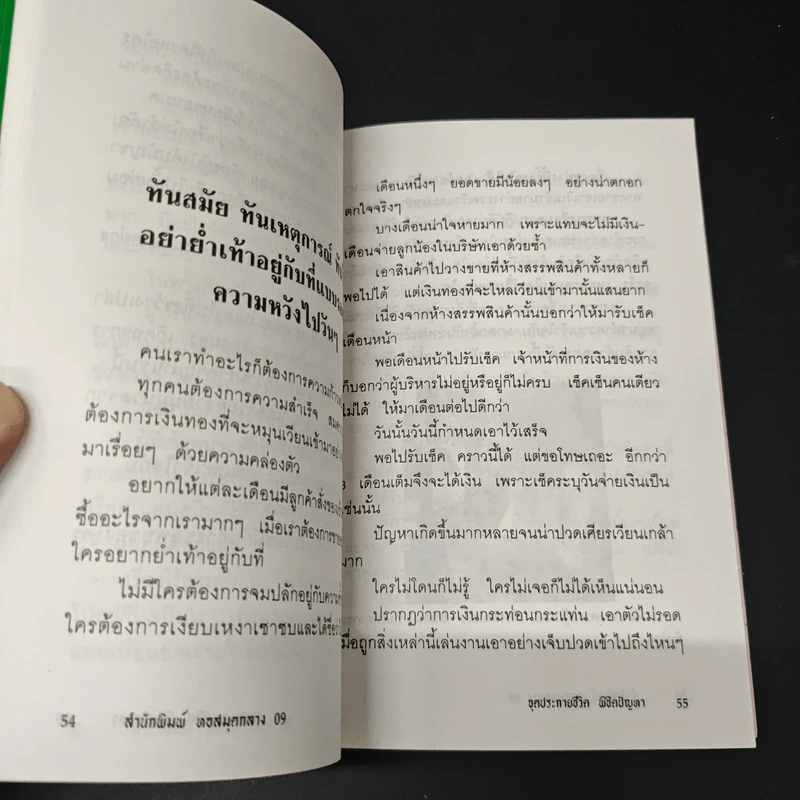 ทันสมัย ทันเหตุการณ์
อย่าย่ำเท้าอยู่กับที่แบบ
ความหวังไปวันๆ
คนเราทำอะไรก็ต้องการความ
ทุกคนต้องการความสำเร็จ
ต้องการเงินทองที่จะหมุนเวียนเข้ามา
มาเรื่อยๆ ด้วยความคล่องตัว
อยากให้แต่ละเดือนมีลูกค้าสั่งของ
ซื้ออะไรจากเรามากๆ เมื่อเราต้องการ
ใครอยากย่ำเท้าอยู่กับที่
ไม่มีใครต้องการจมปลักอยู่กับความ
ใครต้องการเงียบเหงาเซาซบและได้ชื่อ
54 สำนักพิมพ์ หอสมุดกลาง 09
เดือนหนึ่งๆ ยอดขายมีน้อยลงๆ อย่างน่าตกอก
ตกใจจริงๆ
บางเดือนน่าใจหายมาก เพราะแทบจะไม่มีเงิน-
เดือนจ่ายลูกน้องในบริษัทเอาด้วยซ้ำ
เอาสินค้าไปวางขายที่ห้างสรรพสินค้าทั้งหลายก็
พอไปได้ แต่เงินทองที่จะไหลเวียนเข้ามานั้นแสนยาก
เนื่องจากห้างสรรพสินค้านั้นบอกว่าให้มารับเช็ค
เดือนหน้า
พอเดือนหน้าไปรับเช็ค เจ้าหน้าที่การเงินของห้าง
ก็บอกว่าผู้บริหารไม่อยู่หรืออยู่ก็ไม่ครบ เช็คเซ็นคนเดียว
ไม่ได้ ให้มาเดือนต่อไปดีกว่า
วันนั้นวันนี้กำหนดเอาไว้เสร็จ
พอไปรับเช็ค คราวนี้ได้ แต่ขอโทษเถอะ อีกกว่า
3 เดือนเต็มจึงจะได้เงิน เพราะเช็คระบุวันจ่ายเงินเป็น
เช่นนั้น
ปัญหาเกิดขึ้นมากหลายจนน่าปวดเศียรเวียนเกล้า
มาก
ใครไม่โดนก็ไม่รู้ ใครไม่เจอก็ไม่ได้เห็นแน่นอน
ปรากฏว่าการเงินกระท่อนกระแท่น เอาตัวไม่รอด
เมื่อถูกสิ่งเหล่านี้เล่นงานเอาอย่างเจ็บปวดเข้าไปถึงไหนๆ
จุดประกายชีวิต พิชิตปัญหา 55